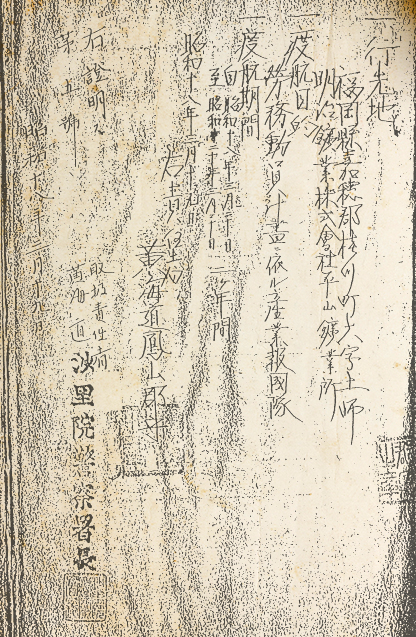 一、行先地
福岡縣嘉穂郡桂川町大字土師
明治鑛業株式會社平山鑛業所
一、渡航目的
労務動員計畫ニ依ル産業報國隊
一、渡航期間
自昭和十八年三月二十日
至昭和二十年三月十日 二ヶ年間
昭和十八年三月十九日
黄海道鳳山郡
右證明ス
第五號
昭和十八年三月十九日
黄海道
沙里院警察署長